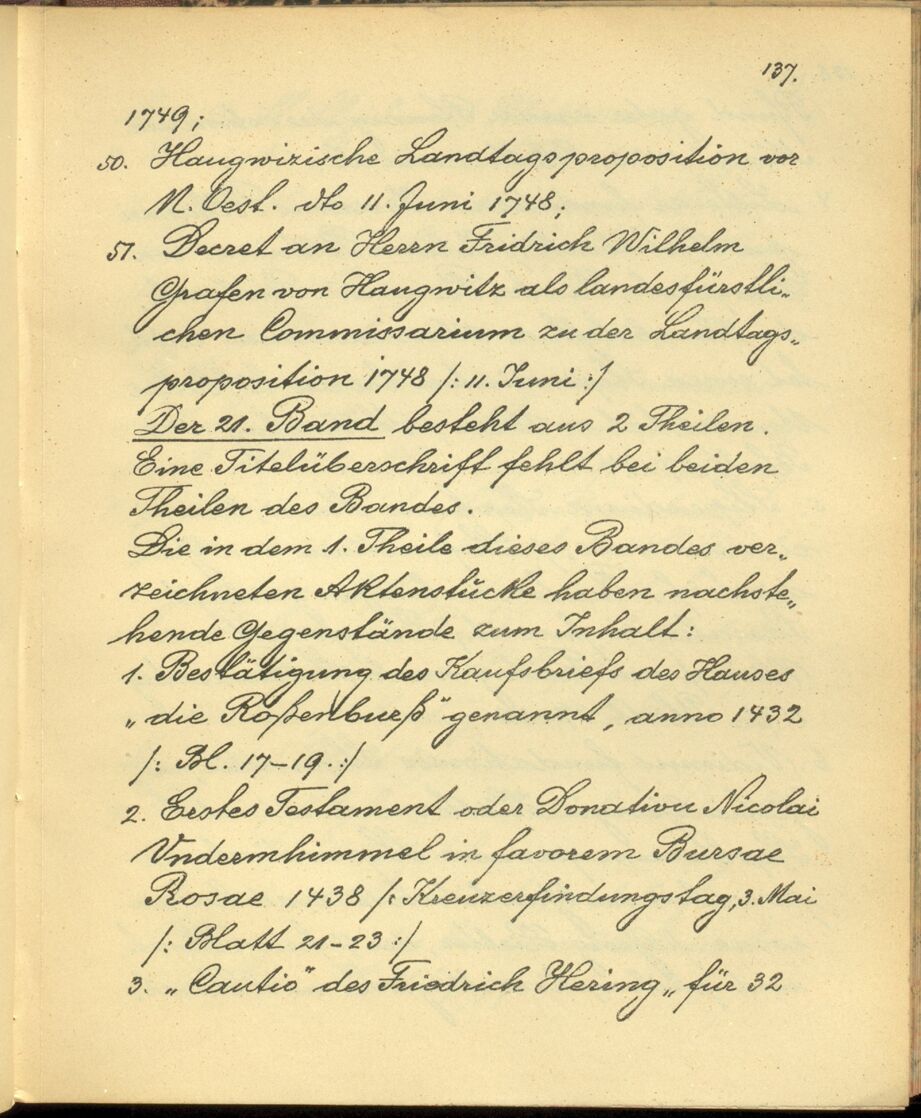 137.
1749;
50. Haugwizische Landtagsproposition vor
N. Oest. dto 11. Juni 1748;
51. Decret an Herrn Fridrich Wilhelm
Grafen von Haugwitz als landesfürstli„
chen Commissarium zu der Landtags„
proposition 1748 /: 11. Juni :/
Der 21. Band besteht aus 2 Theilen.
Eine Titelüberschrift fehlt bei beiden
Theilen des Bandes.
Die in dem 1. Theile dieses Bandes ver„
zeichneten Aktenstücke haben nachste„
hende Gegenstände zum Inhalt:
1. Bestätigung des Kaufsbriefs des Hauses
„die Roßenburß“ genannt, anno 1432
/: Bl. 17–19. :/
2. Erstes Testament oder Donativu Nicolai
Vndermhimmel in favorem Bursae
Rosae 1438 /: Kreuzerfindungstag, 3. Mai
/: Blatt 21–23 :/
3. „Cautio“ des Friedrich Hering „für 32